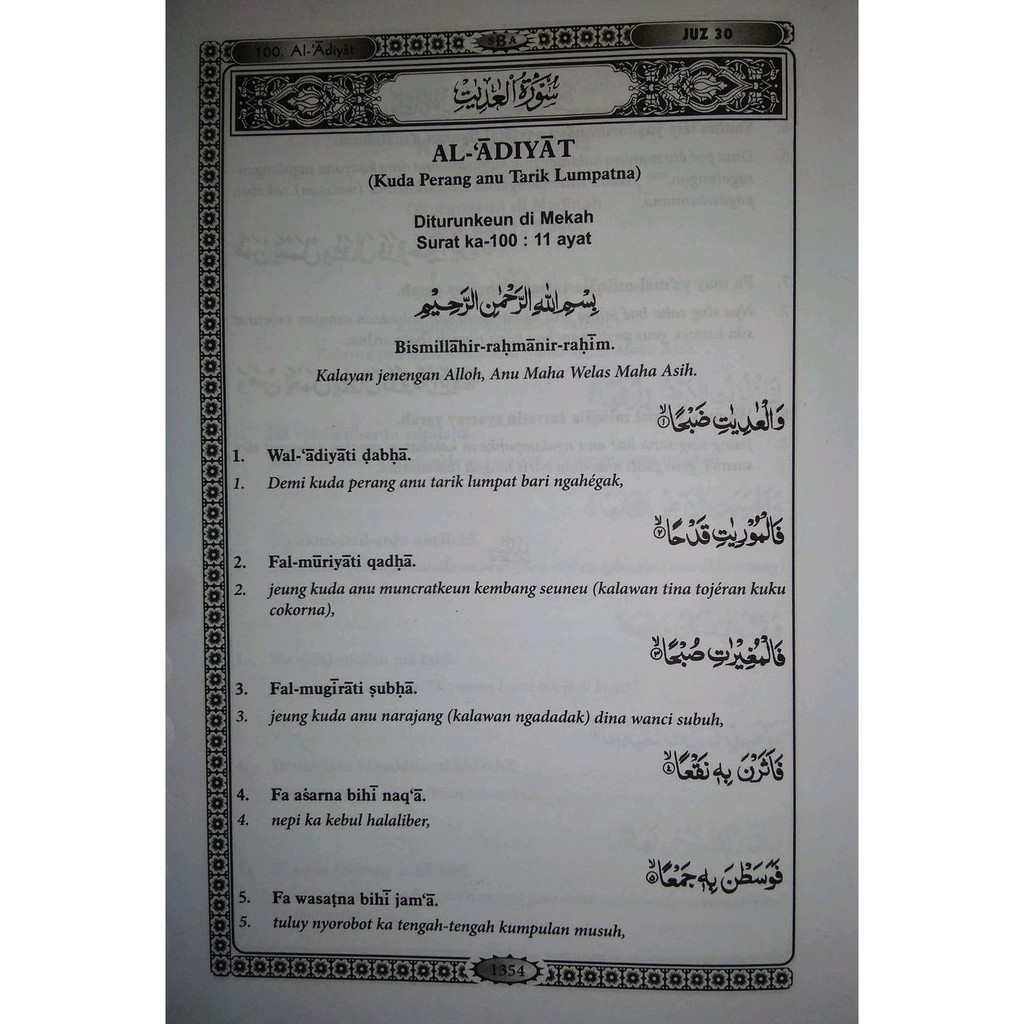 100. Al-'Ādiyāt
SBA
JUZ 30
سُوْرَةُ الْعٰدِيٰتِ
AL-‘ĀDIYĀT
(Kuda Perang anu Tarik Lumpatna)
Diturunkeun di Mekah
Surat ka-100 : 11 ayat
بِسْمِ اللّٰهِ الرَّحْمٰنِ الرَّحِيْمِ
Bismillāhir-raḥmānir-raḥīm.
Kalayan jenengan Alloh, Anu Maha Welas Maha Asih.
وَالْعٰدِيٰتِ ضَبْحًاۙ ١
1. Wal-‘ādiyāti ḍabḥā.
1. Demi kuda perang anu tarik lumpat bari ngahégak,
فَالْمُوْرِيٰتِ قَدْحًاۙ ٢
2. Fal-mūriyāti qadḥā.
2. jeung kuda anu muncratkeun kembang seuneu (kalawan tina tojéran kuku
cokorna),
فَالْمُغِيْرٰتِ صُبْحًاۙ ٣
3. Fal-mugīrāti ṣubḥā.
3. jeung kuda anu narajang (kalawan ngadadak) dina wanci subuh,
فَاَثَرْنَ بِهٖ نَقْعًاۙ ٤
4. Fa aṡarna bihī naq‘ā.
4. nepi ka kebul halaliber,
فَوَسَطْنَ بِهٖ جَمْعًاۙ ٥
5. Fa wasaṭna bihī jam‘ā.
5. tuluy nyorobot ka tengah-tengah kumpulan musuh,
1354